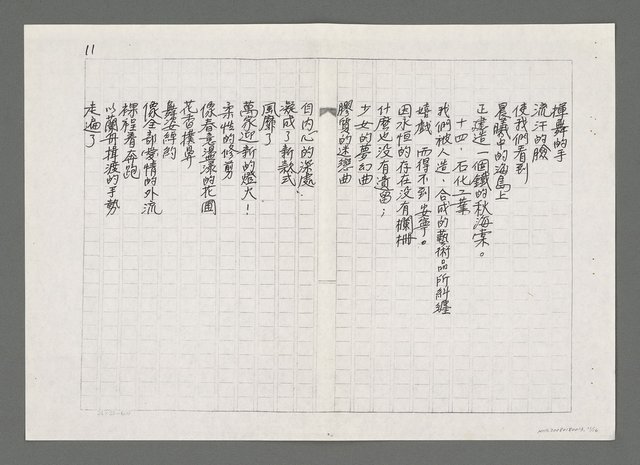 11
揮舞的手
流汗的臉
使我們看到
晨曦中的海島上
正建造一個鐵的秋海棠。
十四、石化工業
我們被人造、合成的藝術品所糾纏
嬉戲 而得不到安寧。
因永恒的存在没有欄柵
什麼也没有遺留；
少女的夢幻曲
膠質的迷戀曲
自内心的深處，
凝成了新款式
風靡了
萬家迎新的燈火！
柔性的修剪
像春意盪漾的花圃
花香撲鼻
舞姿綽約
像全部愛情的外流
裸裎着奔跑
以蘭舟揖渡的手勢
走遍了